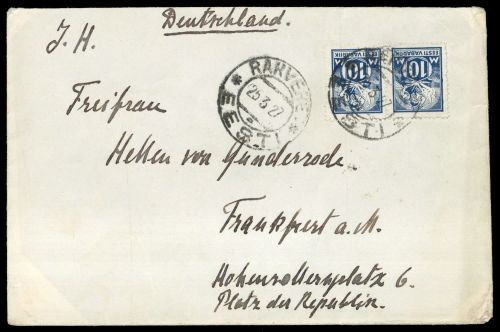 Deutschland.
J. H.
Freifrau
Hellen von Günderrode
Frankfurt a. M.
Hohenzollernplatz 6.
Platz der Republik.
RAKVERE
25.3.27
EESTI
EESTI VABARIIK
10 M
EESTI VABARIIK
10 M
EESTI